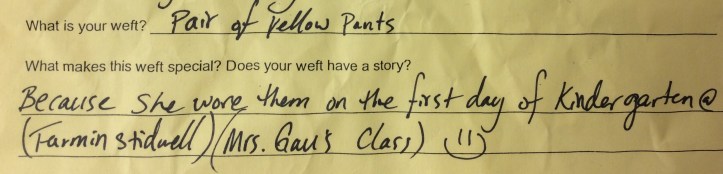 What is your weft? Pair of Yellow Pants
What makes this weft special? Does your weft have a story?
Because she wore them on the first day of Kindergarten @
(Tarmin Stidwell) (Mrs. Gau's Class) :)